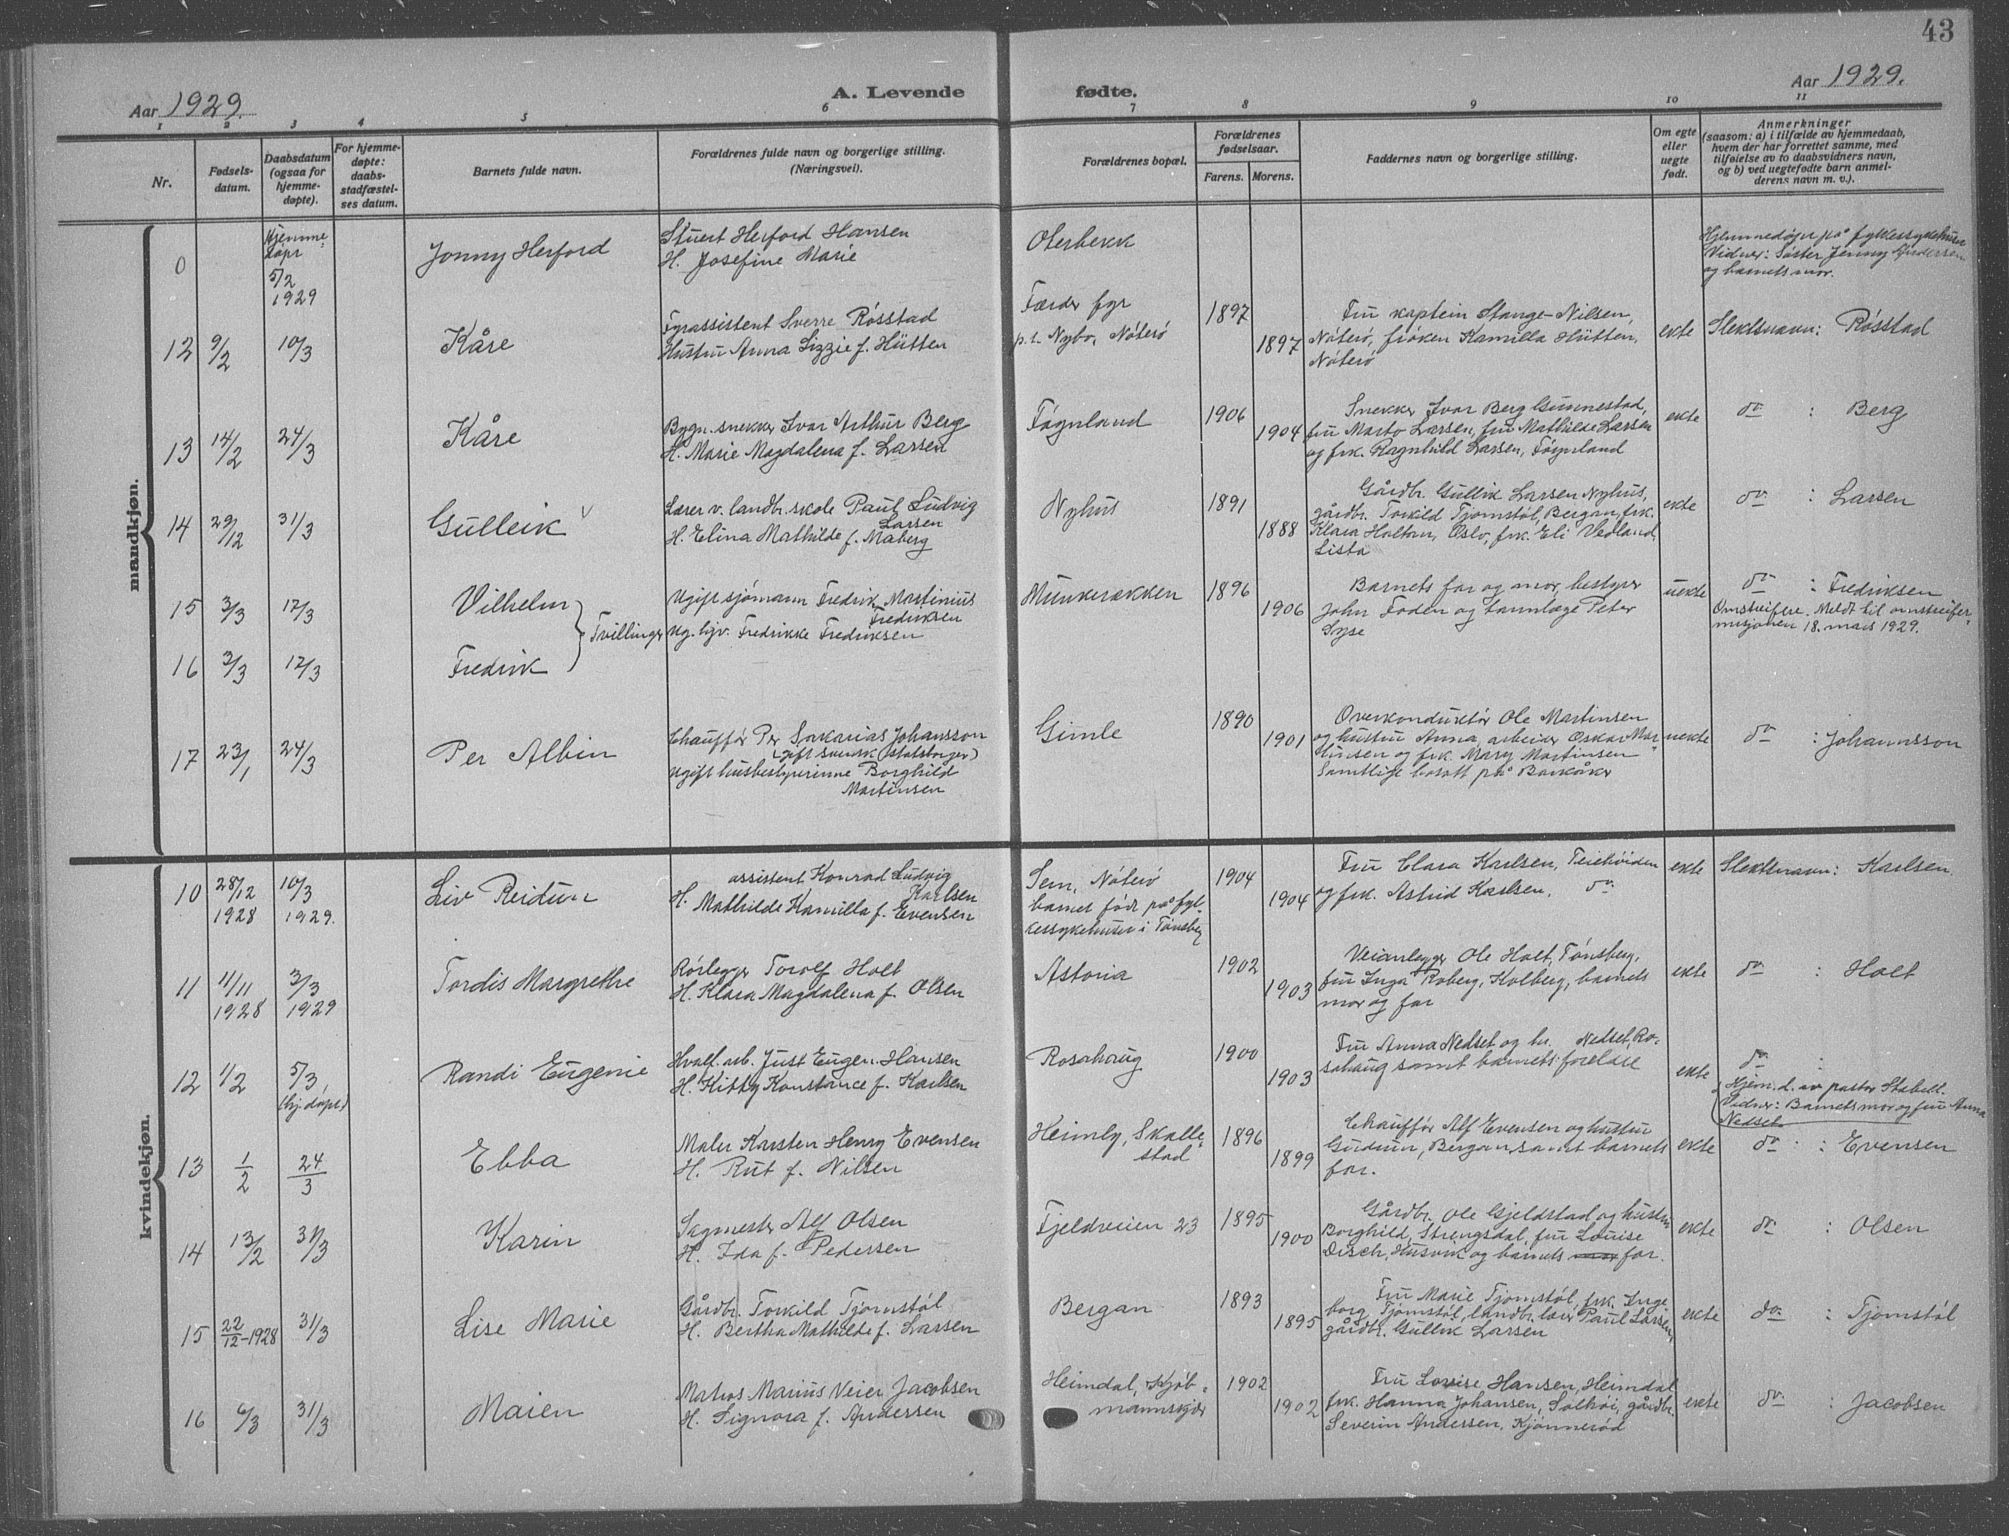 43
Aar 1929.
A. Levende fødte.
Aar 1929.
1 2 3 4 5 6 7 8 9 10 11
Nr.
Fødsels-
datum.
Daabsdatum
(ogsaa for
hjemme-
døpte).
For hjemme-
døpte:
daabs-
stadfæstel-
ses datum.
Barnets fulde navn.
Forældrenes fulde navn og borgerlige stilling.
(Næringsvei).
Forældrenes bopæl.
Forældrenes
fødselsaar.
Farens. Morens.
Faddernes navn og borgerlige stilling.
Om egte
eller
uegte
født.
Anmerkninger
(saasom: a) i tilfælde av hjemmedaab,
hvem der har forrettet samme, med
tilføielse av to daabsvidners navn,
og b) ved uegtefødte barn anmel-
derens navn m. v.).
mandkjøn.
0
Hjemme
døpt
5/2
1929
Jonny Herford
Stuert Herford Hansen
H. Josefine Marie
Olsbekk
Hjemmedøpt på fylkessykehuset
Vidner: Søster Jenny Andersen
og barnets mor.
12 9/2 10/3 Kåre
Fyrassistent Sverre Røsstad
Hustru Anna Lizzie f. Hütten
Færder fyr
p.t. Nybo, Nøterø
1897 1897
Fru kaptein Stange-Nilsen,
Nøterø, frøken Kamilla Hütten,
Nøterø
ekte Slektsnavn: Røsstad
13 14/2 24/3 Kåre
Bygn. snekker Ivar Arthur Berg
H. Marie Magdalena f. Larsen
Føgnland
1906 1904
Snekker Ivar Berg Gunnestad,
fru Marto Larsen, fru Mathilde Larsen
og frk. Ragnhild Larsen, Føgnland
ekte do : Berg
14 29/12 31/3 Gulleik v
Lærer v. landbr. skole Paul Ludvig
Larsen
H. Elina Mathilde f. Maberg
Nyhus
1891 1888
Gårdbr. Gullik Larsen Nyhus,
gårdbr. Torkild Tjomstøl, Bergan, frk.
Klara Holtan, Oslo, frk. Eli Vedland,
Lista
ekte do : Larsen
15 3/3 17/3 Vilhelm
Tvillinger
Ugift sjømann Fredrik Martinius
Fredriksen
Ug. tjv. Fredrikke Fredriksen
Munkerekken
1896 1906
Barnets far og mor, bestyrer
John Foden og tannlæge Peter
Syse
uekte do : Fredriksen
Omstreifere. Meldt til omstreifer-
misjonen 18. mars 1929.
16 3/3 17/3 Fredrik
17 23/1 24/3 Per Albin
Chauffør Per Sakarias Johansson
(gift svensk statsborger)
Ugift husbestyrerinne Borghild
Martinsen
Gimle
1890 1901
Overkonduktør Ole Martinsen
og hustru Anna, arbeider Oskar Mar-
tinsen og frk. Mary Martinsen
Samtlige bosatt på Barkåker
uekte do : Johannsson
kvindekjøn.
10 28/12 1928 10/3 1929. Liv Reidun
assistent Konrad Ludvig
Karlsen
H. Mathilde Kamilla f. Evensen
Sem, Nøterø
barnet født på fyl-
kessykehuset i Tønsberg
1904 1904
Fru Clara Karlsen, Teiehøiden
og frk. Astrid Karlsen, do
ekte Slektsnavn: Karlsen
11 11/11 1928 3/3 1929 Tordis Margrethe
Rørlegger Torolf Holt
H. Klara Magdalena f. Olsen
Astoria
1902 1903
Veianlegger Ole Holt, Tønsberg,
fru Inga Roberg, Kolberg, barnets
mor og far
ekte do : Holt
12 1/2 5/3 (hj. døpt) Randi Eugenie
Hvalf. arb. Just Eugen Hansen
H. Kitty Konstance f. Karlsen
Rosahaug
1900 1903
Fru Anna Nedset og hr. Nedset, Ro-
sahaug samt barnets foreldre
ekte do :
Hjem. d. av pastor Stabell.
Vidner: Barnets mor og fru Anna
Nedset
13 1/2 24/3 Ebba
Maler Karsten Henry Evensen
H. Rut f. Nilsen
Heimly, Skalle-
stad
1896 1899
Chauffør Alf Evensen og hustru
Gudrun, Bergan, samt barnets
far.
ekte do : Evensen
14 13/2 31/3 Karin
Sagmester Alf Olsen
H. Ida f. Pedersen
Fjeldveien 23
1895 1900
Gårdbr. Ole Gjeldstad og hustru
Borghild, Strengsdal, fru Louise
Disch, Husvik og barnets mor far.
ekte do : Olsen
15 22/12-1928 31/3 Lise Marie
Gårdbr. Torkild Tjomstøl
H. Bertha Mathilde f. Larsen
Bergan
1893 1895
Fru Marie Tjomstøl, frk. Inge-
borg Tjomstøl, landbr. lær Paul Larsen,
gårdbr. Gullik Larsen
ekte do : Tjomstøl
16 6/3 31/3 Maien
Matros Marius Veier Jacobsen
H. Signora f. Andersen
Heimdal, Kjøb-
mannskjær
1902 1902
Fru Lovise Hansen, Heimdal
frk. Hanna Johansen, Solhøi, gårdbr.
Severin Andersen, Kjønnerød
ekte do : Jacobsen